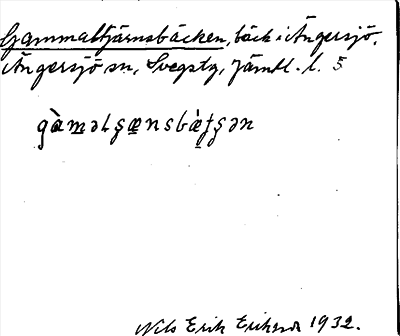 Gammaltjärnsbäcken, bäck i Ängersjö,
Ängersjö sn, Svegs tg, Jämtl. l. 5
gàməlʂænsbæ̀ʈʂən
Nils Erik Erikson 1932.